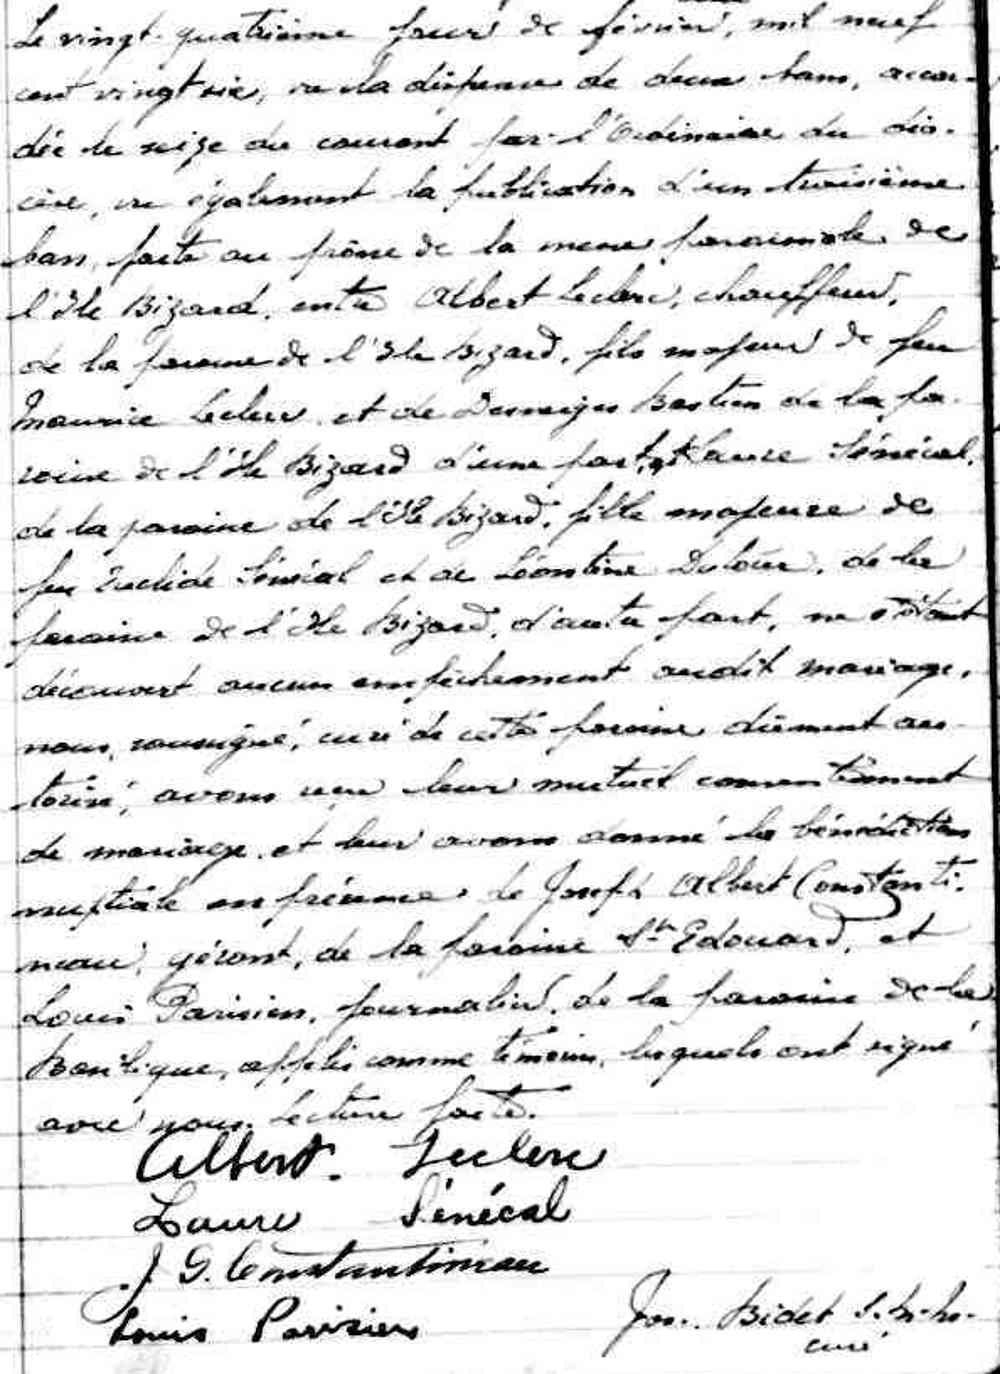 Le vingt-quatrième jour de février, mil neuf
cent vingt six, vu la dispense de deux bans, accor-
dée le seize du courant par l'Ordinaire du dio-
cèse, vu également la publication d'un troisième
ban, faite au prône de la messe paroissiale de
l'Ile Bizard, entre Albert Leclerc, chauffeur,
de la paroisse de l'Ile Bizard, fils majeur de feu
Maurice Leclerc et de Desneiges Bastien de la pa-
roisse de l'Ile Bizard d'une part, et Laure Sénécal,
de la paroisse de l'Ile Bizard, fille majeure de
feu Euclide Sénécal et de Léontine, de la
paroisse de l'Ile Bizard, d'autre part, ne s'étant
découvert aucun empêchement audit mariage,
nous, soussigné, curé de cette paroisse dûment au-
torisé, avons reçu leur mutuel consentement
de mariage et leur avons donné la bénédiction
nuptiale en présence de Joseph Albert Constanti-
neau, gérant, de la paroisse St Edouard, et
Louis Parisien, journalier, de la paroisse de la
Basilique, appelés comme témoins, lesquels ont signé
avec nous. Lecture faite.
Albert Leclerc
Laure Sénécal
J. G. Constantineau
Louis Parisien
Jos. Bidet
curé